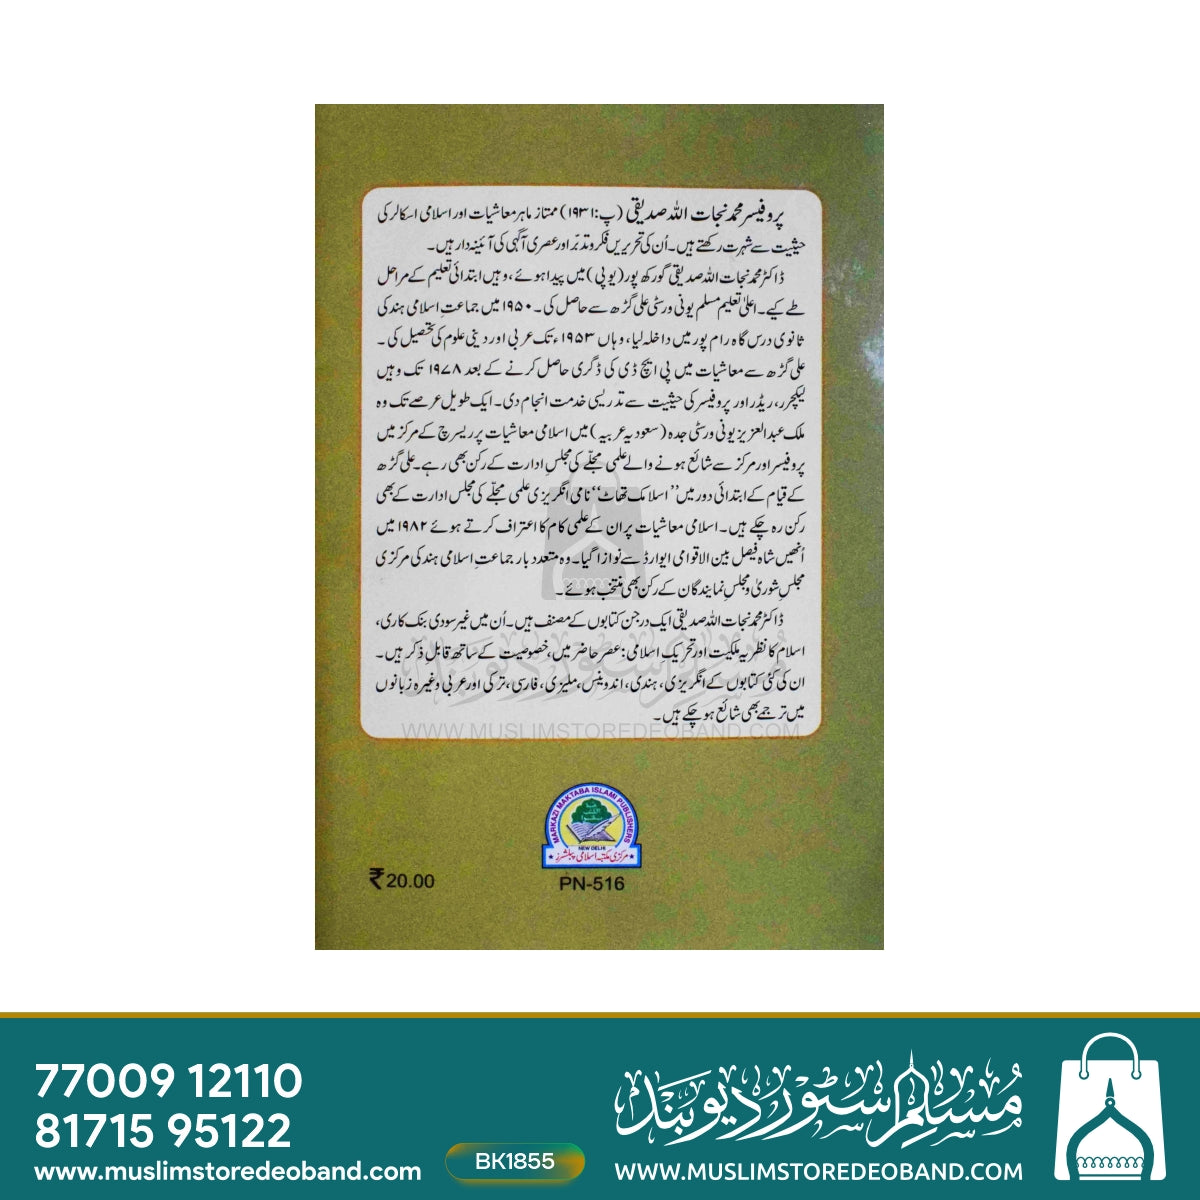 پروفیسر محمد نجات اللہ صدیقی (پ:۱۹۳۱) ممتاز ماہر معاشیات اور اسلامی اسکالر کی
حیثیت سے شہرت رکھتے ہیں۔ اُن کی تحریریں فکر و تدبّر اور عصری آگہی کی آئینہ دار ہیں۔
ڈاکٹر محمد نجات اللہ صدیقی گورکھ پور (یوپی) میں پیدا ہوئے، وہیں ابتدائی تعلیم کے مراحل
طے کیے۔ اعلیٰ تعلیم مسلم یونی ورسٹی علی گڑھ سے حاصل کی۔ ۱۹۵۰ میں جماعتِ اسلامی ہند کی
ثانوی درس گاہ رام پور میں داخلہ لیا، وہاں ۱۹۵۳ء تک عربی اور دینی علوم کی تحصیل کی۔
علی گڑھ سے معاشیات میں پی ایچ ڈی کی ڈگری حاصل کرنے کے بعد ۱۹۷۸ تک وہیں
لیکچرر، ریڈر اور پروفیسر کی حیثیت سے تدریسی خدمت انجام دی۔ ایک طویل عرصے تک وہ
ملک عبدالعزیز یونی ورسٹی جدہ (سعودیہ عربیہ) میں اسلامی معاشیات پر ریسرچ کے مرکز میں
پروفیسر اور مرکز سے شائع ہونے والے علمی مجلّے کی مجلسِ ادارت کے رکن بھی رہے۔ علی گڑھ
کے قیام کے ابتدائی دور میں ”اسلامک تھاٹ“ نامی انگریزی علمی مجلّے کی مجلس ادارت کے بھی
رکن رہ چکے ہیں۔ اسلامی معاشیات پر ان کے علمی کام کا اعتراف کرتے ہوئے ۱۹۸۲ میں
اُنھیں شاہ فیصل بین الاقوامی ایوارڈ سے نوازا گیا۔ وہ متعدد بار جماعتِ اسلامی ہند کی مرکزی
مجلسِ شوریٰ و مجلسِ نمایندگان کے رکن بھی منتخب ہوئے۔
ڈاکٹر محمد نجات اللہ صدیقی ایک درجن کتابوں کے مصنف ہیں۔ اُن میں غیر سودی بنک کاری،
اسلام کا نظریہ ملکیت اور تحریکِ اسلامی: عصر حاضر میں، خصوصیت کے ساتھ قابلِ ذکر ہیں۔
ان کی کئی کتابوں کے انگریزی، ہندی، انڈونیسی، ملیزی، فارسی، ترکی اور عربی وغیرہ زبانوں
میں ترجمے بھی شائع ہو چکے ہیں۔
مسلم سٹور دیوبند
WWW.MUSLIMSTOREDEOBAND.COM
MARKAZI MAKTABA ISLAMI PUBLISHERS
NEW DELHI
مرکزی مکتبہ اسلامی پبلشرز
₹ 20.00
PN-516
77009 12110
81715 95122
www.muslimstoredeoband.com
BK1855
مُسلِم سٹور دیوبَند
WWW.MUSLIMSTOREDEOBAND.COM